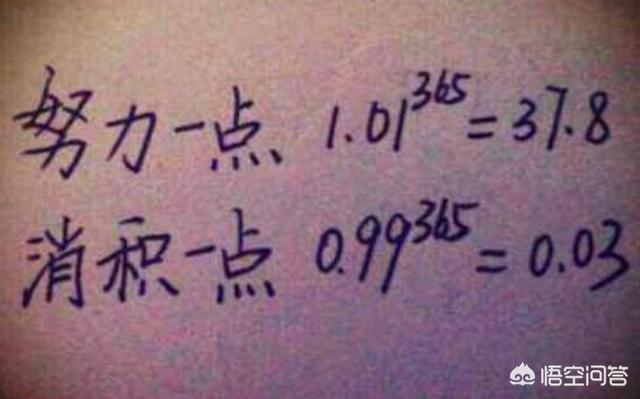 努力一点 1.01^365 = 37.8
消积一点 0.99^365 = 0.03
悟空问答